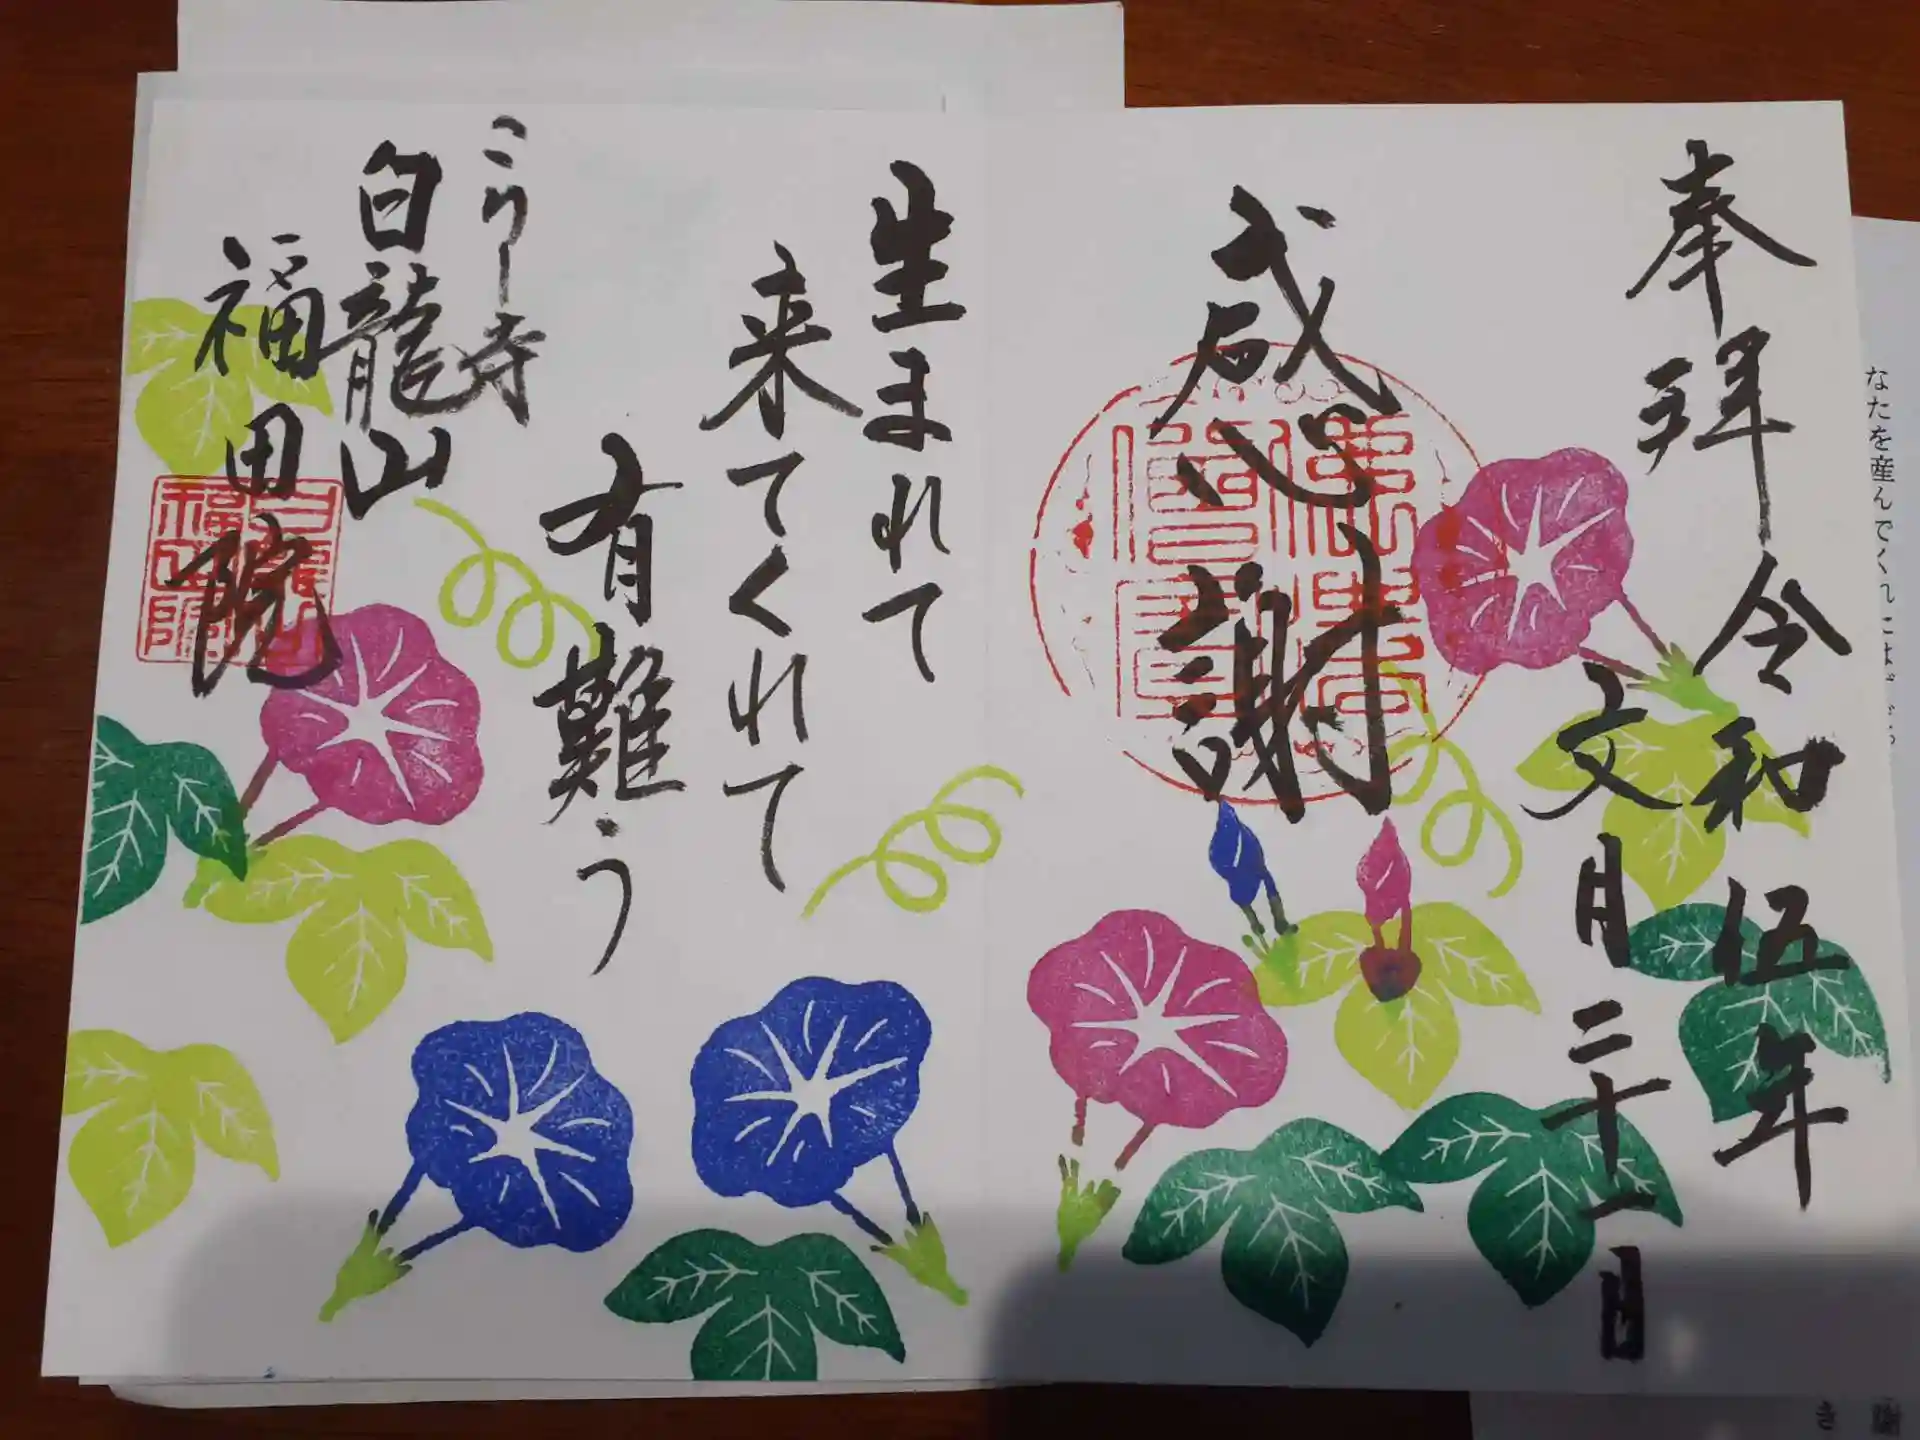 奉拝
令和伍年
文月二十一日
感謝
生まれて
来てくれて
有難う
こりー寺
白龍山
福田院
なたを産んでくれ